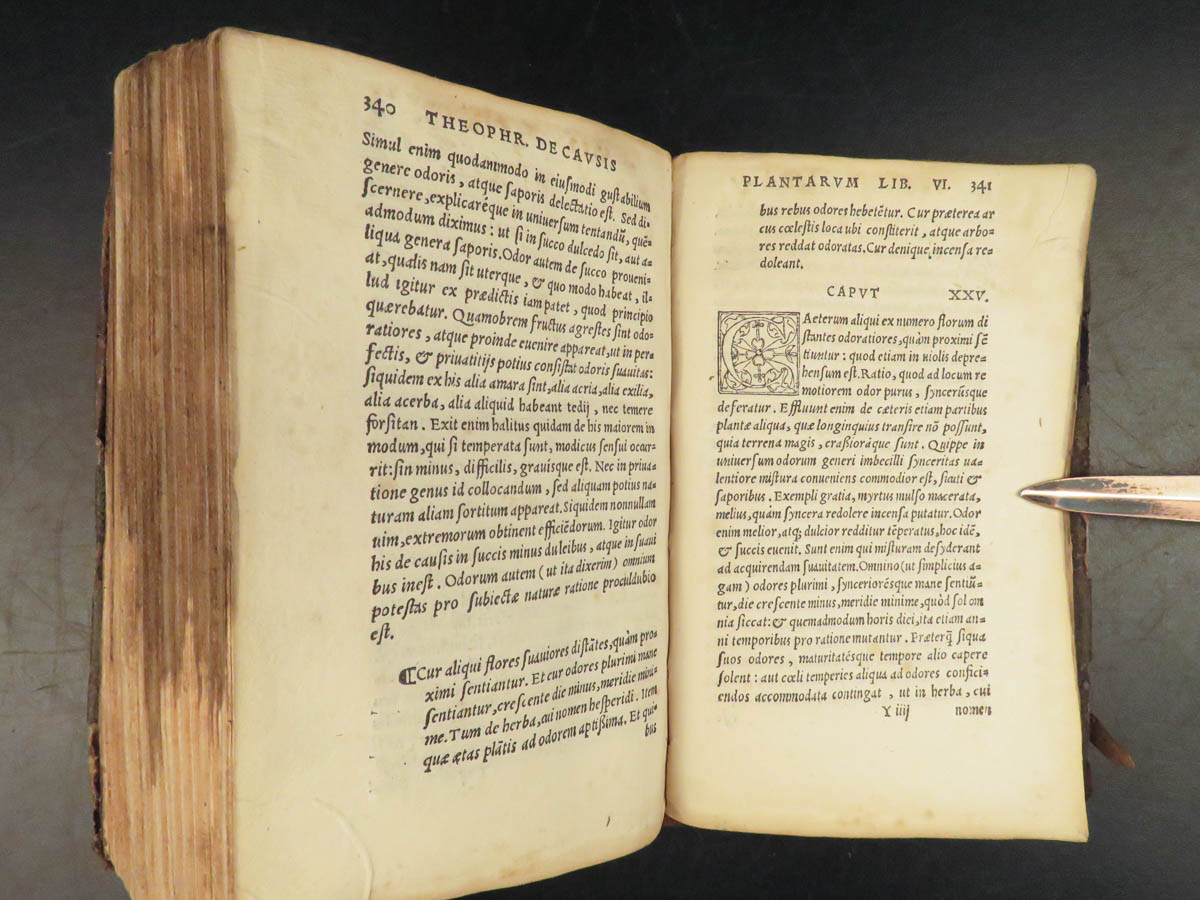 340 THEOPHR. DE CAVSIS
Simul enim quodammodo in eiusmodi gustabilium
genere odoris, atque saporis delectatio est. Sed di
scernere, explicaréque in uniuersum tentandũ, quẽ-
admodum diximus: ut si in succo dulcedo sit, aut a-
liqua genera saporis. Odor autem de succo proueni-
at, qualis nam sit uterque, & quo modo habeat, il-
lud igitur ex prædictis iam patet, quod principio
quærebatur. Quamobrem fructus agrestes sint odo-
ratiores, atque proinde euenire appareat, ut in per-
fectis, & priuatitijs potius consistat odoris suauitas:
siquidem ex his alia amara sint, alia acria, alia exilia,
alia acerba, alia aliquid habeant tedij, nec temere
forsitan. Exit enim halitus quidam de his maiorem in
modum, qui si temperata sunt, modicus sensui occur-
rit: sin minus, difficilis, grauisque est. Nec in priua-
tione genus id collocandum, sed aliquam potius na-
turam aliam sortitum appareat. Siquidem nonnullam
uim, extremorum obtinent efficiẽdorum. Igitur odor
his de causis in succis minus dulcibus, atque in suaui
bus inest. Odorum autem (ut ita dixerim) omnium
potestas pro subiectæ naturæ ratione proculdubio
est.
¶Cur aliqui flores suauiores distãtes, quàm pro-
ximi sentiantur. Et cur odores plurimi mane
sentiantur, crescente die minus, meridie mini-
me. Tum de herba, cui nomen hesperidi. Item
quæ ætas plãtis ad odorem aptissima. Et qui-
bus
PLANTARVM LIB. VI. 341
bus rebus odores hebetẽtur. Cur præterea ar
cus cœlestis loca ubi constiterit, atque arbo-
res reddat odoratas. Cur denique, incensa re-
doleant.
CAPVT XXV.
CAeterum aliqui ex numero florum di
stantes odoratiores, quàm proximi sẽ
tiuntur: quod etiam in uiolis depre-
hensum est. Ratio, quod ad locum re
motiorem odor purus, syncerúsque
deferatur. Effluunt enim de cæteris etiam partibus
plantæ aliqua, quæ longinquius transire nõ possunt,
quia terrena magis, crassioráque sunt. Quippe in
uniuersum odorum generi imbecilli synceritas ua-
lentiore mistura conueniens commodior est, sicuti &
saporibus. Exempli gratia, myrtus mulso macerata,
melius, quàm syncera redolere incensa putatur. Odor
enim melior, atq; dulcior redditur tẽperatus, hoc idẽ,
& succis euenit. Sunt enim qui misturam desyderant
ad acquirendam suauitatem. Omnino (ut simplicius a-
gam) odores plurimi, synceriorésque mane sentiũ-
tur, die crescente minus, meridie minime, quòd sol om
nia siccat: & quemadmodum horis diei, ita etiam an-
ni temporibus pro ratione mutantur. Præterq̃ siqua
suos odores, maturitatésque tempore alio capere
solent: aut cœli temperies aliqua ad odores confici-
endos accommodata contingat, ut in herba, cui
Y iiij nomen